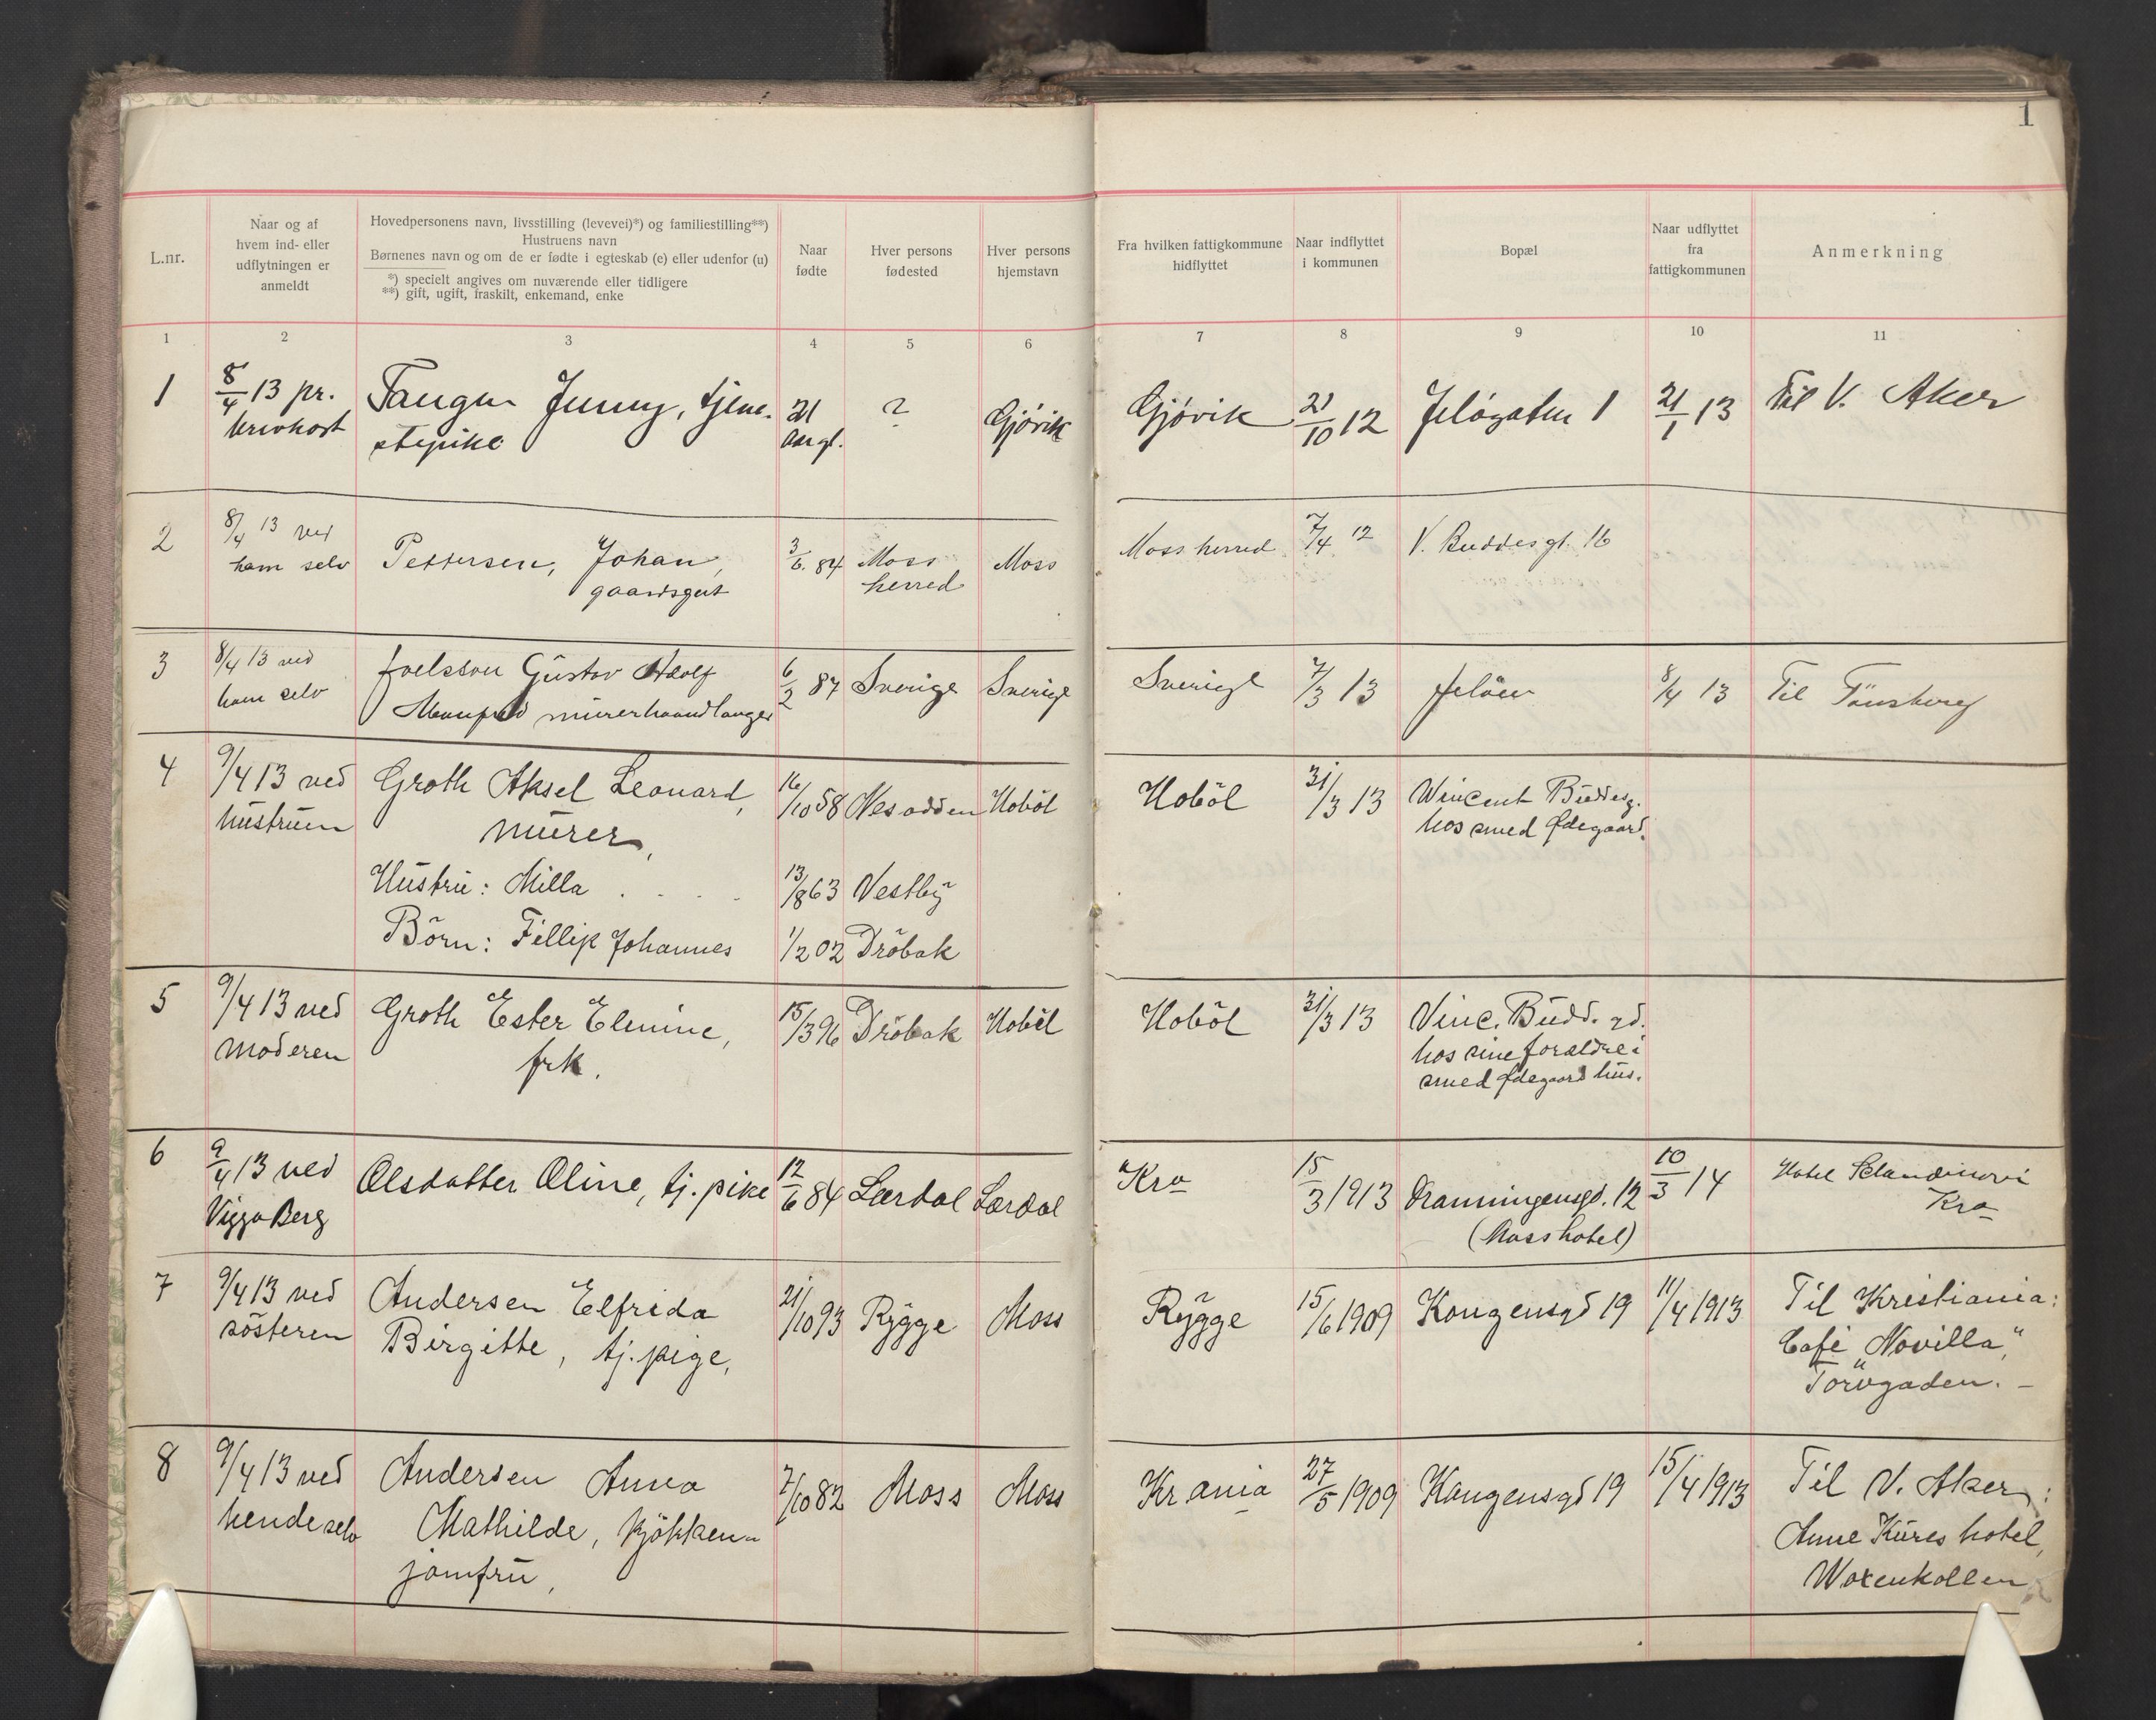 1
L.nr.
Naar og af
hvem ind- eller
udflytningen er
anmeldt
Hovedpersonens navn, livsstilling (levevei)*) og familiestilling**)
Hustruens navn
Børnenes navn og om de er fødte i egteskab (e) eller udenfor (u)
*) specielt angives om nuværende eller tidligere
**) gift, ugift, fraskilt, enkemand, enke
Naar
fødte
Hver persons
fødested
Hver persons
hjemstavn
Fra hvilken fattigkommune
hidflyttet
Naar indflyttet
i kommunen
Bopæl
Naar udflyttet
fra
fattigkommunen
Anmerkning
1 2 3 4 5 6 7 8 9 10 11
1
8/4 13 pr.
brevkort
Jenny, tjene-
stepike
21
aar gl.
?
Gjövik
Gjövik
21/10 12
Jelögaten 1
21/1 13
Til V. Aker
2
8/4 13 ved
ham selv
Pettersen, Johan,
gaardsgut
3/6. 84
Moss
herred
Moss
Moss herred
7/4 12
V. Buddesgt. 16
3
8/4 13 ved
ham selv
Joelsson Gustav Adolf
Manfred murerhaandlanger
6/2 87
Sverige
Sverige
Sverige
7/3 13
Jelöen
8/4 13
Til Tönsberg
4
9/4 13 ved
hustruen
Groth Aksel Leonard,
murer,
Hustru: Milla . . .
Börn: Fillip Johannes
16/10 58
13/8 63
1/2 02
Nesodden
Vestby
Dröbak
Hoböl
Hoböl
31/3 13
Wincent Buddesg.
hos smed Ødegaard.
5
9/4 13 ved
moderen
Groth Ester Elmine,
frk.
15/3 96
Dröbak
Hoböl
Hoböl
31/3 13
Vinc. Budd. gd.
hos sine forældre i
smed Ødegaards hus.
6
9/4 13 ved
Viggo Berg
Olsdatter Oline, tj. pike
12/6 84
Lærdal
Lærdal
Kra
15/3 1913
Dronningensgd. 12
(Moss hotel)
10/3 14
Hotel
Kra
7
9/4 13 ved
sösteren
Andersen Elfrida
Birgitte, tj. pige,
21/10 93
Rygge
Moss
Rygge
15/6 1909
Kongensgd 19
11/4 1913
Til Kristiania:
Café „Novilla“,
Torvgaden. –
8
9/4 13 ved
hende selv
Andersen Anna
Mathilde, kjökken-
jomfru,
7/10 82
Moss
Moss
Krania
27/5 1909
Kongensgd 19
15/4 1913
Til V. Aker:
Anne Kures hotel,
Woxenkollen